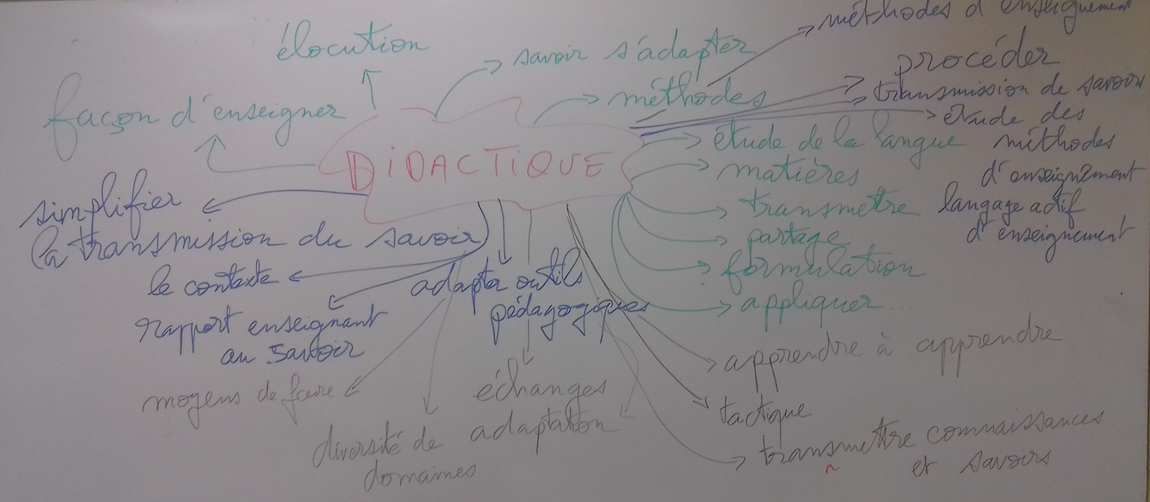 méthodes d'enseignement
élocution
savoir s'adapter
procéder
façon d'enseigner
méthodes
transmission de savoir
étude des
méthodes
d'enseignement
DIDACTIQUE
étude de la langue
matières
simplifier
(la transmission du savoir)
transmettre
langage actif
d'enseignement
partage
le contexte
adapter outils
pédagogiques
formulation
appliquer
rapport enseignant
au savoir
apprendre à apprendre
moyens de faire
échanges
tactique
diversité de
domaines
adaptation
transmettre connaissances
et savoirs